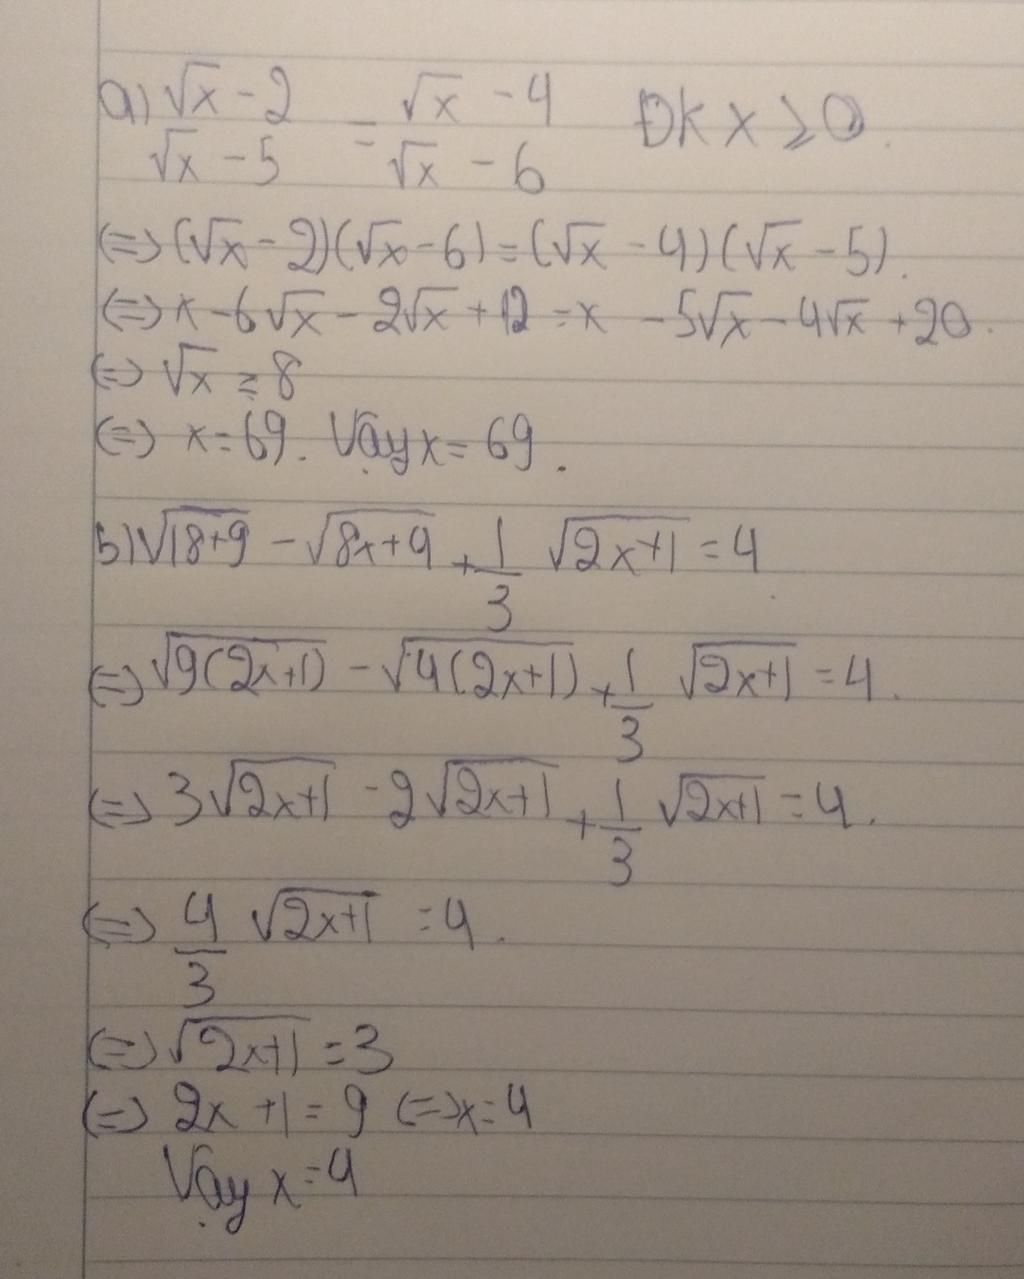 a) (√x - 2)/(√x - 5) = (√x - 4)/(√x - 6) ĐK x ≥ 0.
(=) (√x - 2)(√x - 6) = (√x - 4)(√x - 5).
(=) x - 6√x - 2√x + 12 = x - 5√x - 4√x + 20.
(=) √x = 8
(=) x = 69. Vậy x = 69.
b) √(18+9) - √(8x+9) + 1/3 √(2x+1) = 4
(=) √(9(2x+1)) - √(4(2x+1)) + 1/3 √(2x+1) = 4.
(=) 3√(2x+1) - 2√(2x+1) + 1/3 √(2x+1) = 4.
(=) 4/3 √(2x+1) = 4.
(=) √(2x+1) = 3
(=) 2x + 1 = 9 (=) x = 4
Vậy x = 4